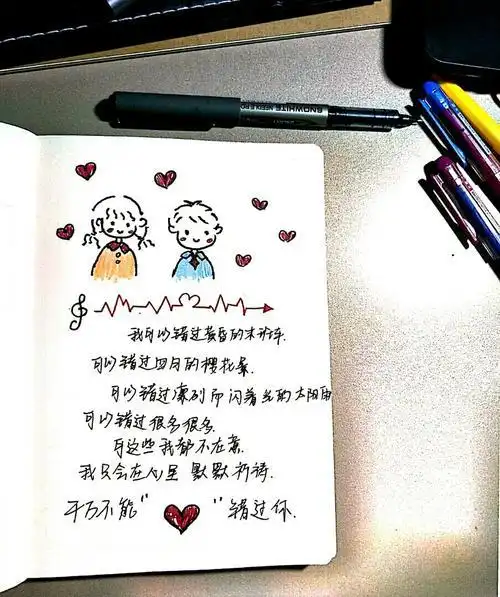 SNOWHITE
我可以错过黄昏的末班车.
可以错过四月的樱花祭.
可以错过凛冽而闪着光的太阳雨
可以错过很多很多.
可这些我都不在意.
我只会在心里 默默祈祷.
千万不能“ ”错过你.